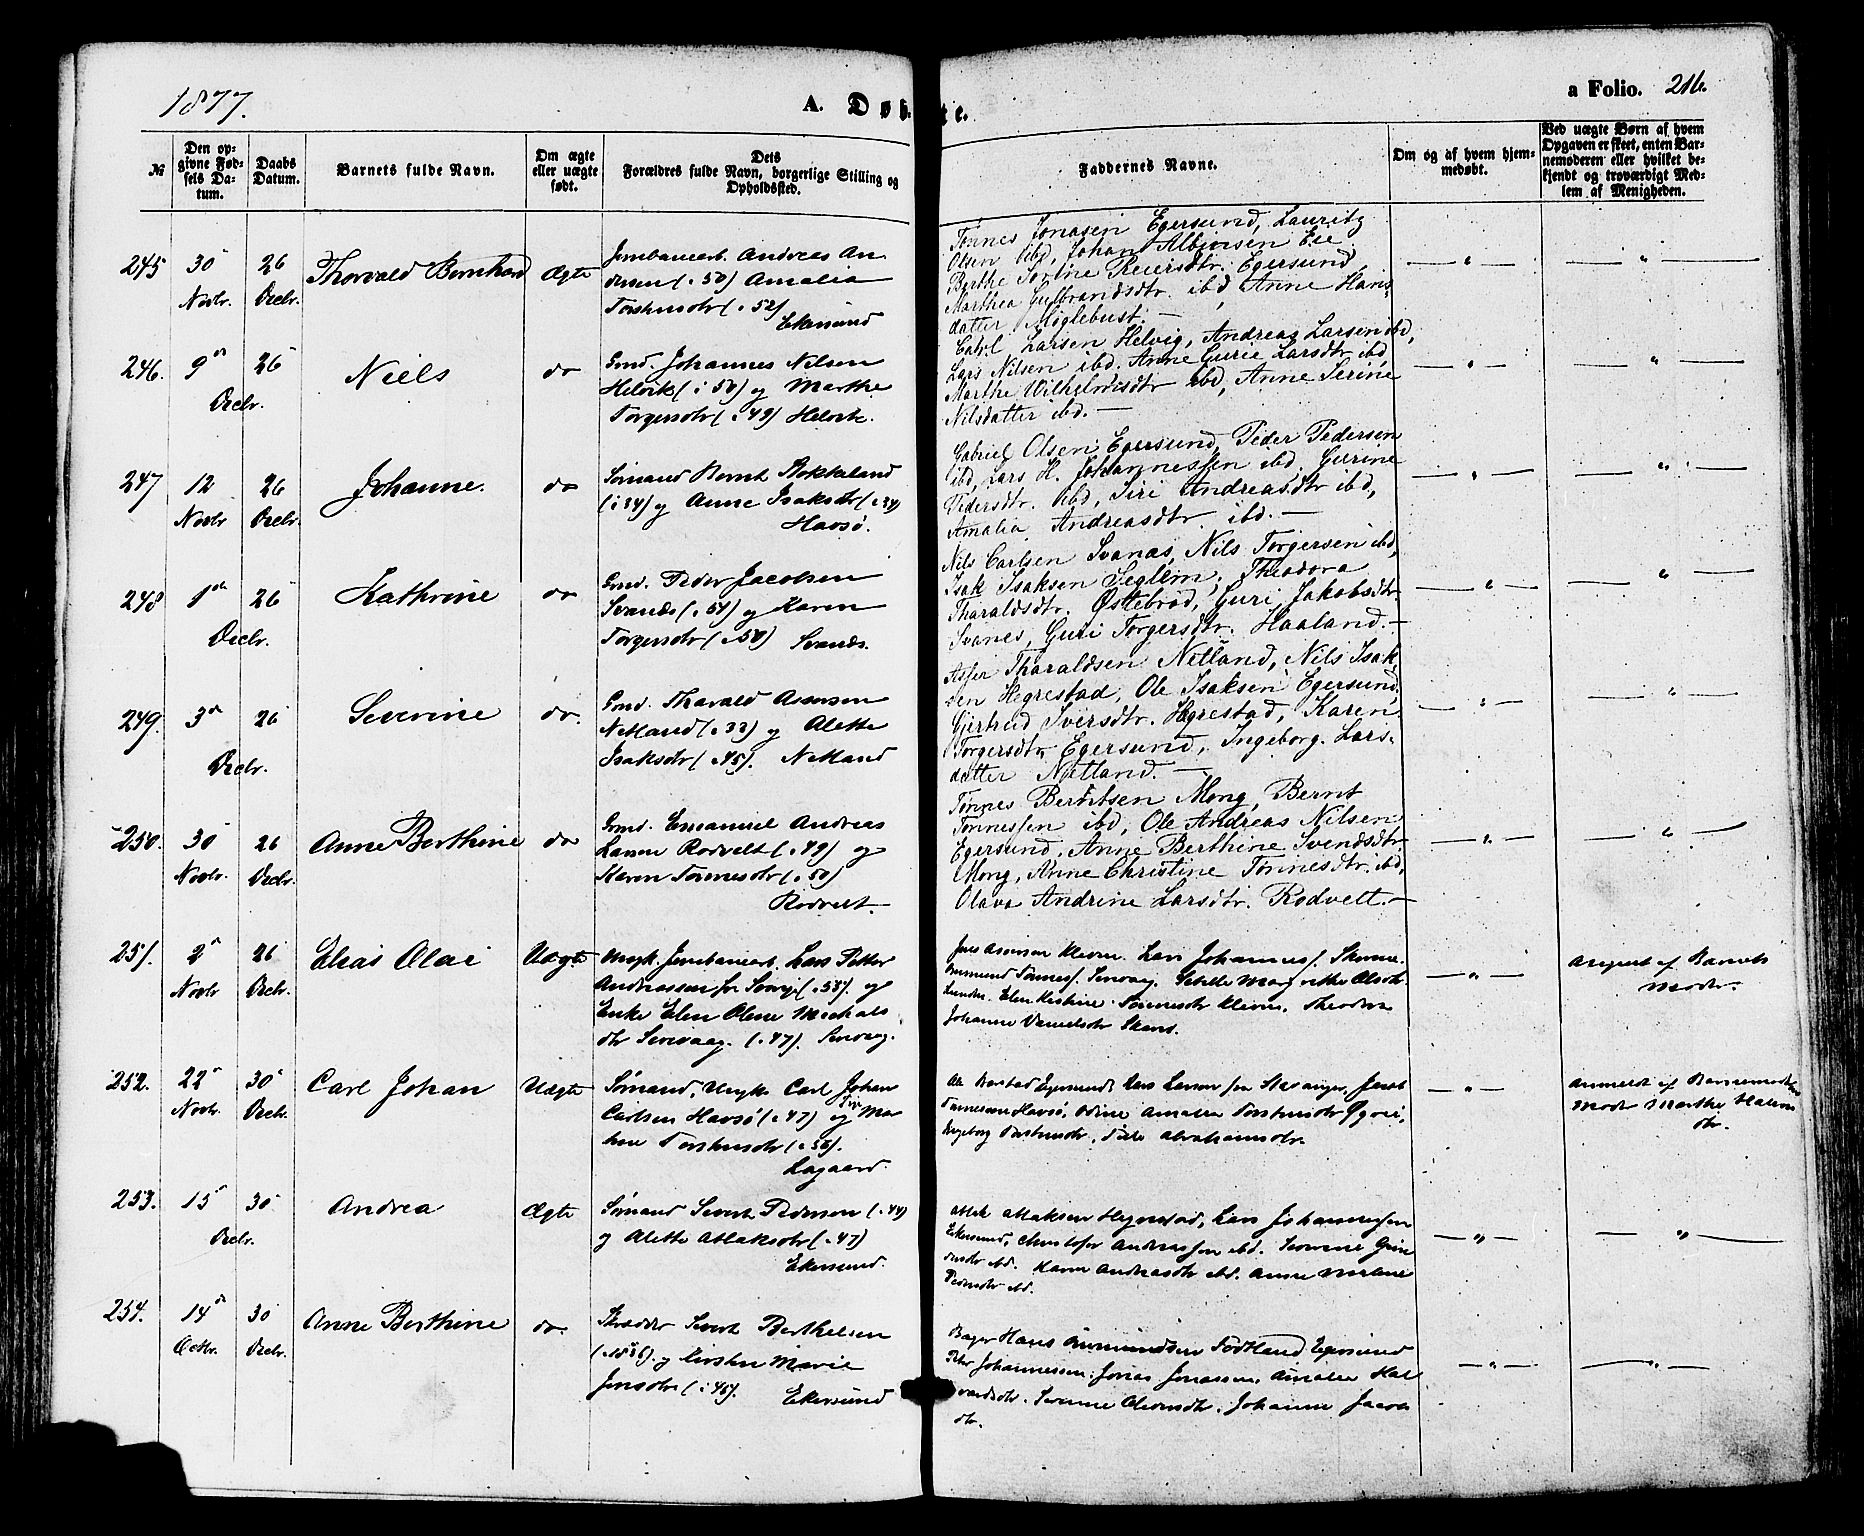 1877.
A. Døbte.
a Folio. 216.
№
Den opgivne Fødsels Datum.
Daabs Datum.
Barnets fulde Navn.
Om ægte eller uægte født.
Dets Forældres fulde Navn, borgerlige Stilling og Opholdssted.
Faddernes Navne.
Om og af hvem hjemmedøbt.
Ved uægte Børn af hvem Opgaven er skeet, enten Barnemoderen eller hvilket bekjendt og troværdigt Medlem af Menigheden.
245 30 Novbr. 26 Decbr. Thorvald Bernhard Ægte
Jernbanearb. Andreas An
dersen (i 50) Amalia
Torstensdtr (i 52)
Ekersund
Tønnes Jonasen Egersund, Lauritz
Olsen ibd, Johan Albjørsen Eie
Berthe Sorine Reiersdtr. Egersund,
Marthea Gulbrandsdtr. ibd, Anne Hans
datter Møglebust. —
— " —
— " —
246. 9 Decbr. 26 Niels do
Gmd. Johannes Nilsen
Helvik (i 50) og Marthe
Torgersdtr (i 49) Helvik.
Larsen Helvig, Andreas Larsen ibd,
Lars Nilsen ibd. Anne Gurie Larsdtr ibd,
Marthe Wilhelmsdtr ibd, Anne Serine
Nilsdatter ibd. —
— " —
— " —
247 12 Novbr 26 Decbr. Johanne. do
Sømand Bernt
(i 34) og Anne Isaksdtr (i 34)
Havsø.
Gabriel Olsen Egersund, Peder Pedersen
ibd, Lars H. Johannessen ibd. Gurine
Pedersdtr. ibd, Siri Andreasdtr ibd,
Amalia Andreasdtr ibd. —
— " —
— " —
248 1 Decbr. 26 Kathrine do
Gmd. Peder Jacobsen
Svanæs (i 51) og Karen
Torgersdtr (i 50) Svanæs.
Nils Carlsen Svanæs, Nils Torgersen ibd,
Isak Isaksen Seglem, Theodora
Tharaldsdtr. Østebrød, Guri Jakobsdtr
Svanes, Guri Torgersdtr. Haaland. —
— " —
— " —
249. 3 Decbr. 26 Severine do.
Gmd. Tharald Assersen
Netland (i 33) og Alette
Isaksdtr (i 45). Netland
Asser Tharaldsen Netland, Nils Isak
sen Hegrestad, Ole Isaksen Egersund,
Gjertrud Sversdtr. Hegrestad, Karen
Torgersdtr Egersund, Ingeborg Lars-
datter Netland. —
— " —
— " —
250. 30 Novbr. 26 Decbr. Anne Berthine do
Gmd. Emanuel Andreas
Larsen Rodvelt (i 49) og
Karen Tønnesdtr (i 50)
Rodvelt.
Tønnes Berntsen Mong, Bernt
Tønnessen ibd, Ole Andreas Nilsen
Egersund, Anne Berthine Svendsdtr.
Mong, Anne Christine Tønnesdtr. ibd,
Olava Andrine Larsdtr. Rodvelt. —
— " —
— " —
251. 2 Novbr 26 Decbr. Elias Olai Uægte
Ungk. Jernbanearb. Lars Petter
Andreassen fra Sverge (i 58). og
Enke Elen Oline Michals
dtr (i 47).
Lars Johannes
Elen Kristine Tønnesdtr
Johanne Danielsdtr
— " —
Angivet af Barnets
Moder.
252. 22 Novbr. 30 Decbr. Carl Johan Uægte
Sømand, Ungk. Carl Johan
Carlsen Havsø (i 47) og Pige Ma
Torstensdtr (i 56).
Lagaard.
Egersund, Lars Larsen fra Stavanger, Jacob
Tønnessen Havsø, Amalia Torstensdtr
Ingeborg Torstensdtr. Abrahamsdtr.
— " —
Anmeldt af Barnemoderens
Moder Marthe
dtr.
253. 15 Decbr. 30 Andrea Ægte
Sømand Sivert Pedersen (i 44)
og Alette Atlaksdtr (i 47)
Ekersund.
Atlaksen Hegrestad, Lars Johannessen
Ekersund, Christofer Andreassen ibd. Severine
ibd. Karen Andreasdtr ibd. Anne
Pedersdtr ibd.
— " —
— " —
254. 14 Octbr. 30 Decbr. Anne Berthine do.
Skrædder Sivert Berthelsen
og Kirsten Marie
Jensdtr (i 46).
Ekersund
Bager Hans Fodtland Egersund
Johannessen. Jonas Jonassen. Amalia Hal
vardsdtr. Johanne Jacobs
dtr.
— " —
— " —